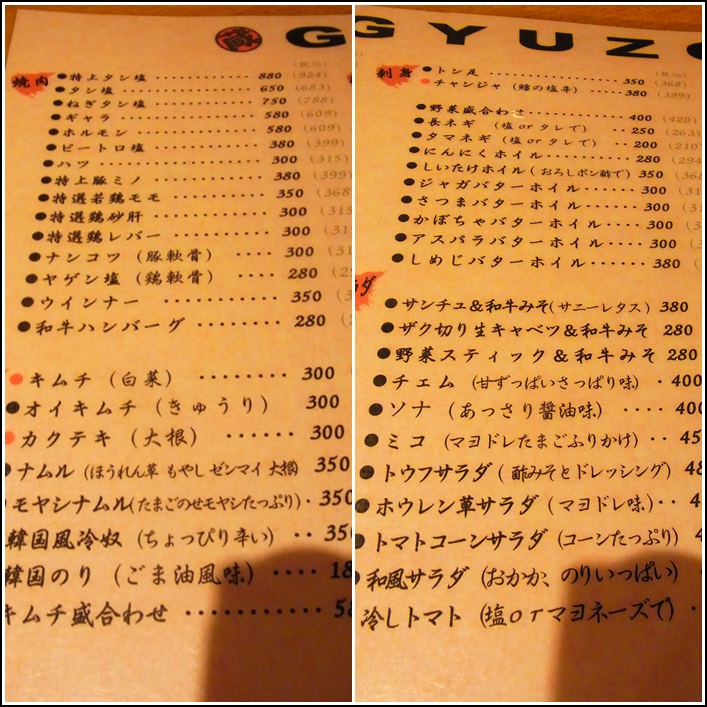 蔵 G
(税込)
焼肉
●特上タン塩 ・・・・・・・・・・ 880 (924)
●タン塩 ・・・・・・・・・・・・ 650 (683)
●ねぎタン塩 ・・・・・・・・・・ 750 (788)
●ギャラ ・・・・・・・・・・・・ 580 (609)
●ホルモン ・・・・・・・・・・・ 580 (609)
●ピートロ塩 ・・・・・・・・・・ 380 (399)
●ハツ ・・・・・・・・・・・・・ 300 (315)
●特上豚ミノ ・・・・・・・・・・ 380 (399)
●特選若鶏モモ ・・・・・・・・・ 350 (368)
●特選鶏砂肝 ・・・・・・・・・・ 300 (315
●特選鶏レバー ・・・・・・・・・ 300 (31
●ナンコツ (豚軟骨) ・・・・・ 300 (31
●ヤゲン塩 (鶏軟骨) ・・・・・ 280 (2
●ウインナー ・・・・・・・・・・ 350 (3
●和牛ハンバーグ ・・・・・・・・ 280 (
●キムチ (白菜) ・・・・・・・・ 300
●オイキムチ (きゅうり) 300
●カクテキ (大根) ・・・・・・ 300
●ナムル (ほうれん草 もやし ゼンマイ 大根) 350
モヤシナムル(たまごのせモヤシたっぷり)・ 350
韓国風冷奴 (ちょっぴり辛い) ・・ 35
韓国のり (ごま油風味) ・・・・ 18
キムチ盛合わせ ・・・・・・・・・・・ 5
GYUZO
(税込)
刺身
●トン足 ・・・・・・・・・・・・ 350 (368)
●チャンジャ (鱈の塩辛) ・・・・・ 380 (399)
●野菜盛合わせ ・・・・・・・・・ 400 (420)
●長ネギ (塩 or タレで) ・・ 250 (263)
●タマネギ (塩 or タレで) ・・ 200 (210
●にんにくホイル ・・・・・・・・ 280 (294
●しいたけホイル (おろしポン酢で) 350 (36
●ジャガバターホイル ・・・・・ 300 (31
●さつまバターホイル ・・・・・ 300 (31
●かぼちゃバターホイル ・・・・ 300 (3
●アスパラバターホイル ・・・・ 300 (3
●しめじバターホイル ・・・・・・ 380 (
ダ
●サンチュ&和牛みそ(サニーレタス) 380
●ザク切り生キャベツ&和牛みそ 280
●野菜スティック&和牛みそ 280
●チェム (甘ずっぱいさっぱり味) ・ 400
●ソナ (あっさり醤油味) ・・・・ 400
●ミコ (マヨドレたまごふりかけ) ・・ 45
●トウフサラダ (酢みそとドレッシング) 48
●ホウレン草サラダ (マヨドレ味)・・ 4
●トマトコーンサラダ (コーンたっぷり) 4
●和風サラダ (おかか、のりいっぱい)
冷しトマト (塩orマヨネーズで) ・